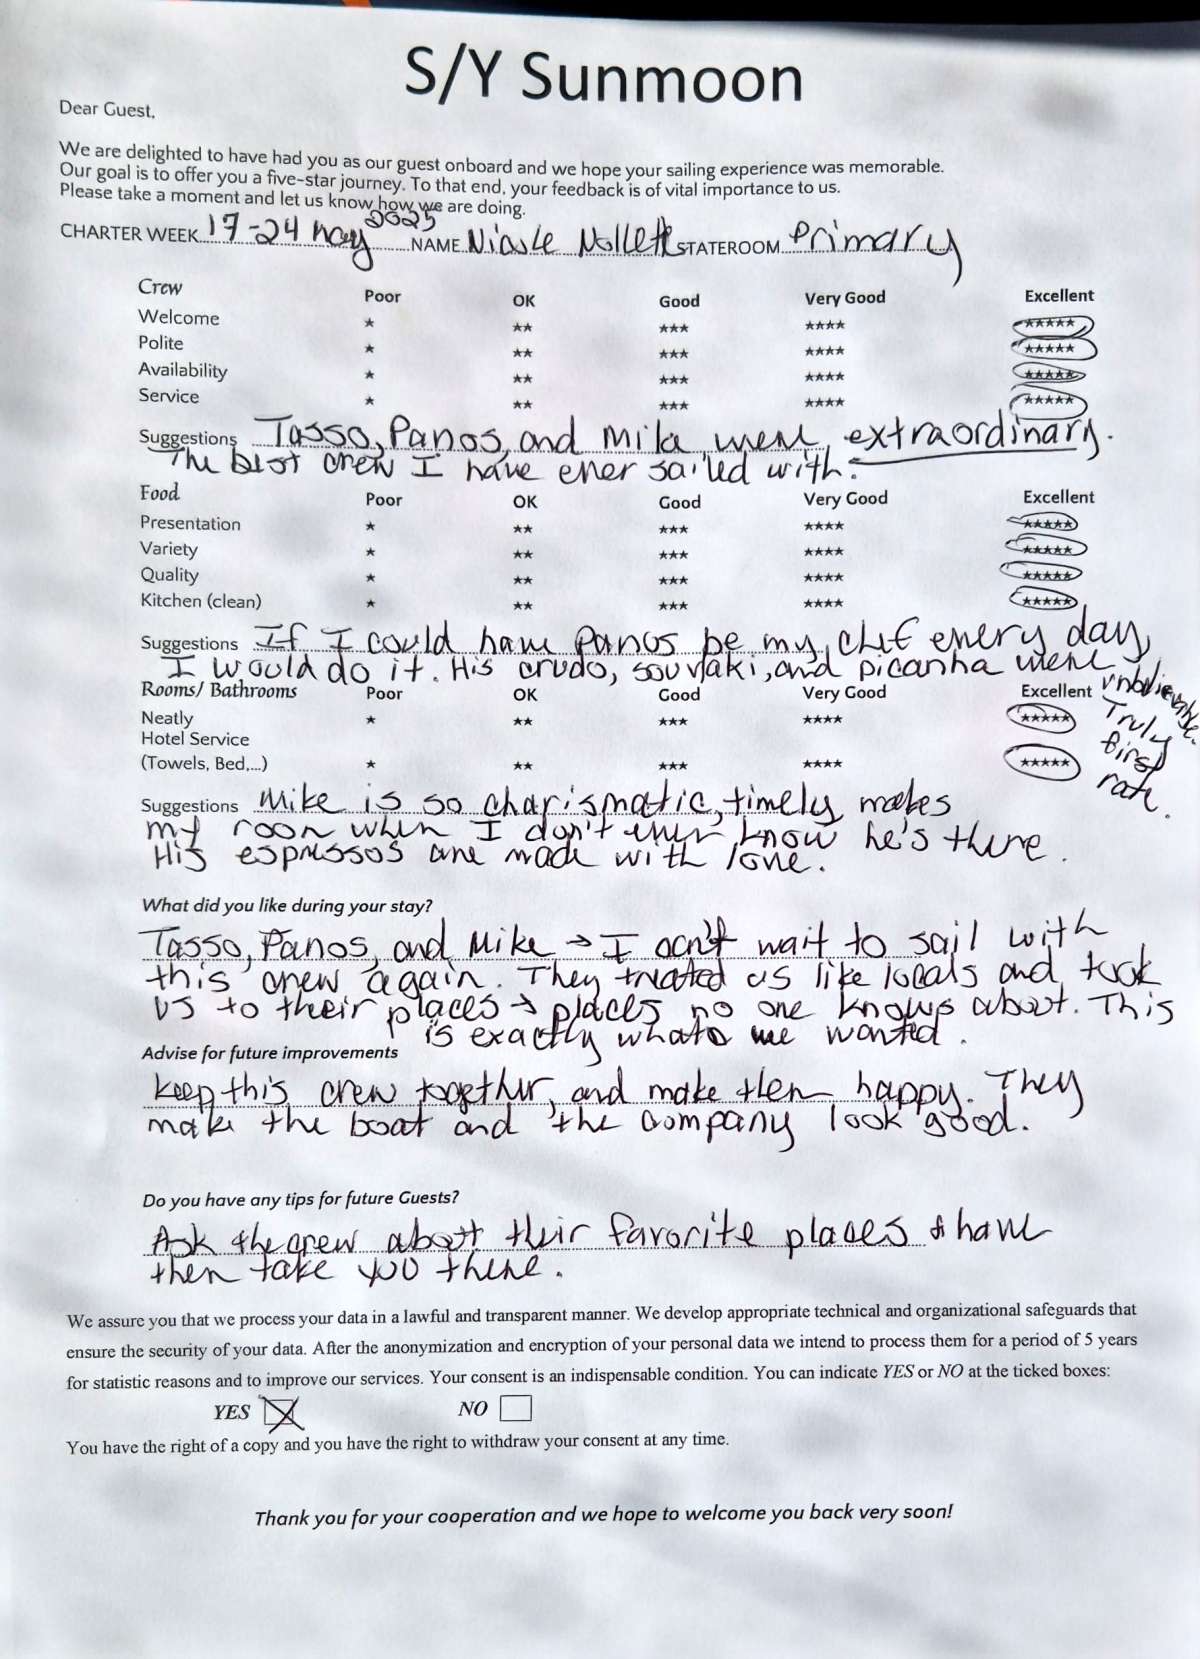 S/Y Sunmoon
Dear Guest,
We are delighted to have had you as our guest onboard and we hope your sailing experience was memorable.
Our goal is to offer you a five-star journey. To that end, your feedback is of vital importance to us.
Please take a moment and let us know how we are doing.
CHARTER WEEK 17-24 May 2025 NAME Nicole STATEROOM Primary
Crew Poor OK Good Very Good Excellent
Welcome ★ ★★ ★★★ ★★★★ ★★★★★
Polite ★ ★★ ★★★ ★★★★ ★★★★★
Availability ★ ★★ ★★★ ★★★★ ★★★★★
Service ★ ★★ ★★★ ★★★★ ★★★★★
Suggestions Tasso, Panos, and Mike were extraordinary.
The best crew I have ever sailed with.
Food Poor OK Good Very Good Excellent
Presentation ★ ★★ ★★★ ★★★★ ★★★★★
Variety ★ ★★ ★★★ ★★★★ ★★★★★
Quality ★ ★★ ★★★ ★★★★ ★★★★★
Kitchen (clean) ★ ★★ ★★★ ★★★★ ★★★★★
Suggestions If I could have Panos be my chef every day,
I would do it. His crudo, souvlaki, and picanha were
unbelievable.
Truly
first
rate.
Rooms/ Bathrooms Poor OK Good Very Good Excellent
Neatly ★ ★★ ★★★ ★★★★ ★★★★★
Hotel Service
(Towels, Bed,...) ★ ★★ ★★★ ★★★★ ★★★★★
Suggestions Mike is so charismatic, timely, makes
my room when I don't even know he's there.
His espressos are made with love.
What did you like during your stay?
Tasso, Panos, and Mike → I can't wait to sail with
this crew again. They treated us like locals and took
us to their places → places no one knows about. This
is exactly what we wanted.
Advise for future improvements
Keep this crew together, and make them happy. They
make the boat and the company look good.
Do you have any tips for future Guests?
Ask the crew about their favorite places & have
them take you there.
We assure you that we process your data in a lawful and transparent manner. We develop appropriate technical and organizational safeguards that
ensure the security of your data. After the anonymization and encryption of your personal data we intend to process them for a period of 5 years
for statistic reasons and to improve our services. Your consent is an indispensable condition. You can indicate YES or NO at the ticked boxes:
YES NO
You have the right of a copy and you have the right to withdraw your consent at any time.
Thank you for your cooperation and we hope to welcome you back very soon!